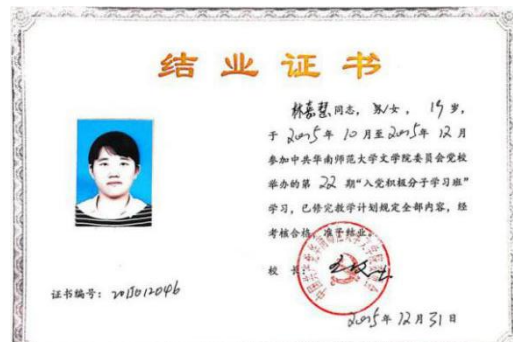 结业证书
林嘉慧同志，男/女，19岁，
于2015年10月至2015年12月
参加中共华南师范大学文学院委员会党校
举办的第22期“入党积极分子学习班”
学习，已修完教学计划规定全部内容，经
考核合格，准予结业。
校长：
证书编号：
2015年12月31日